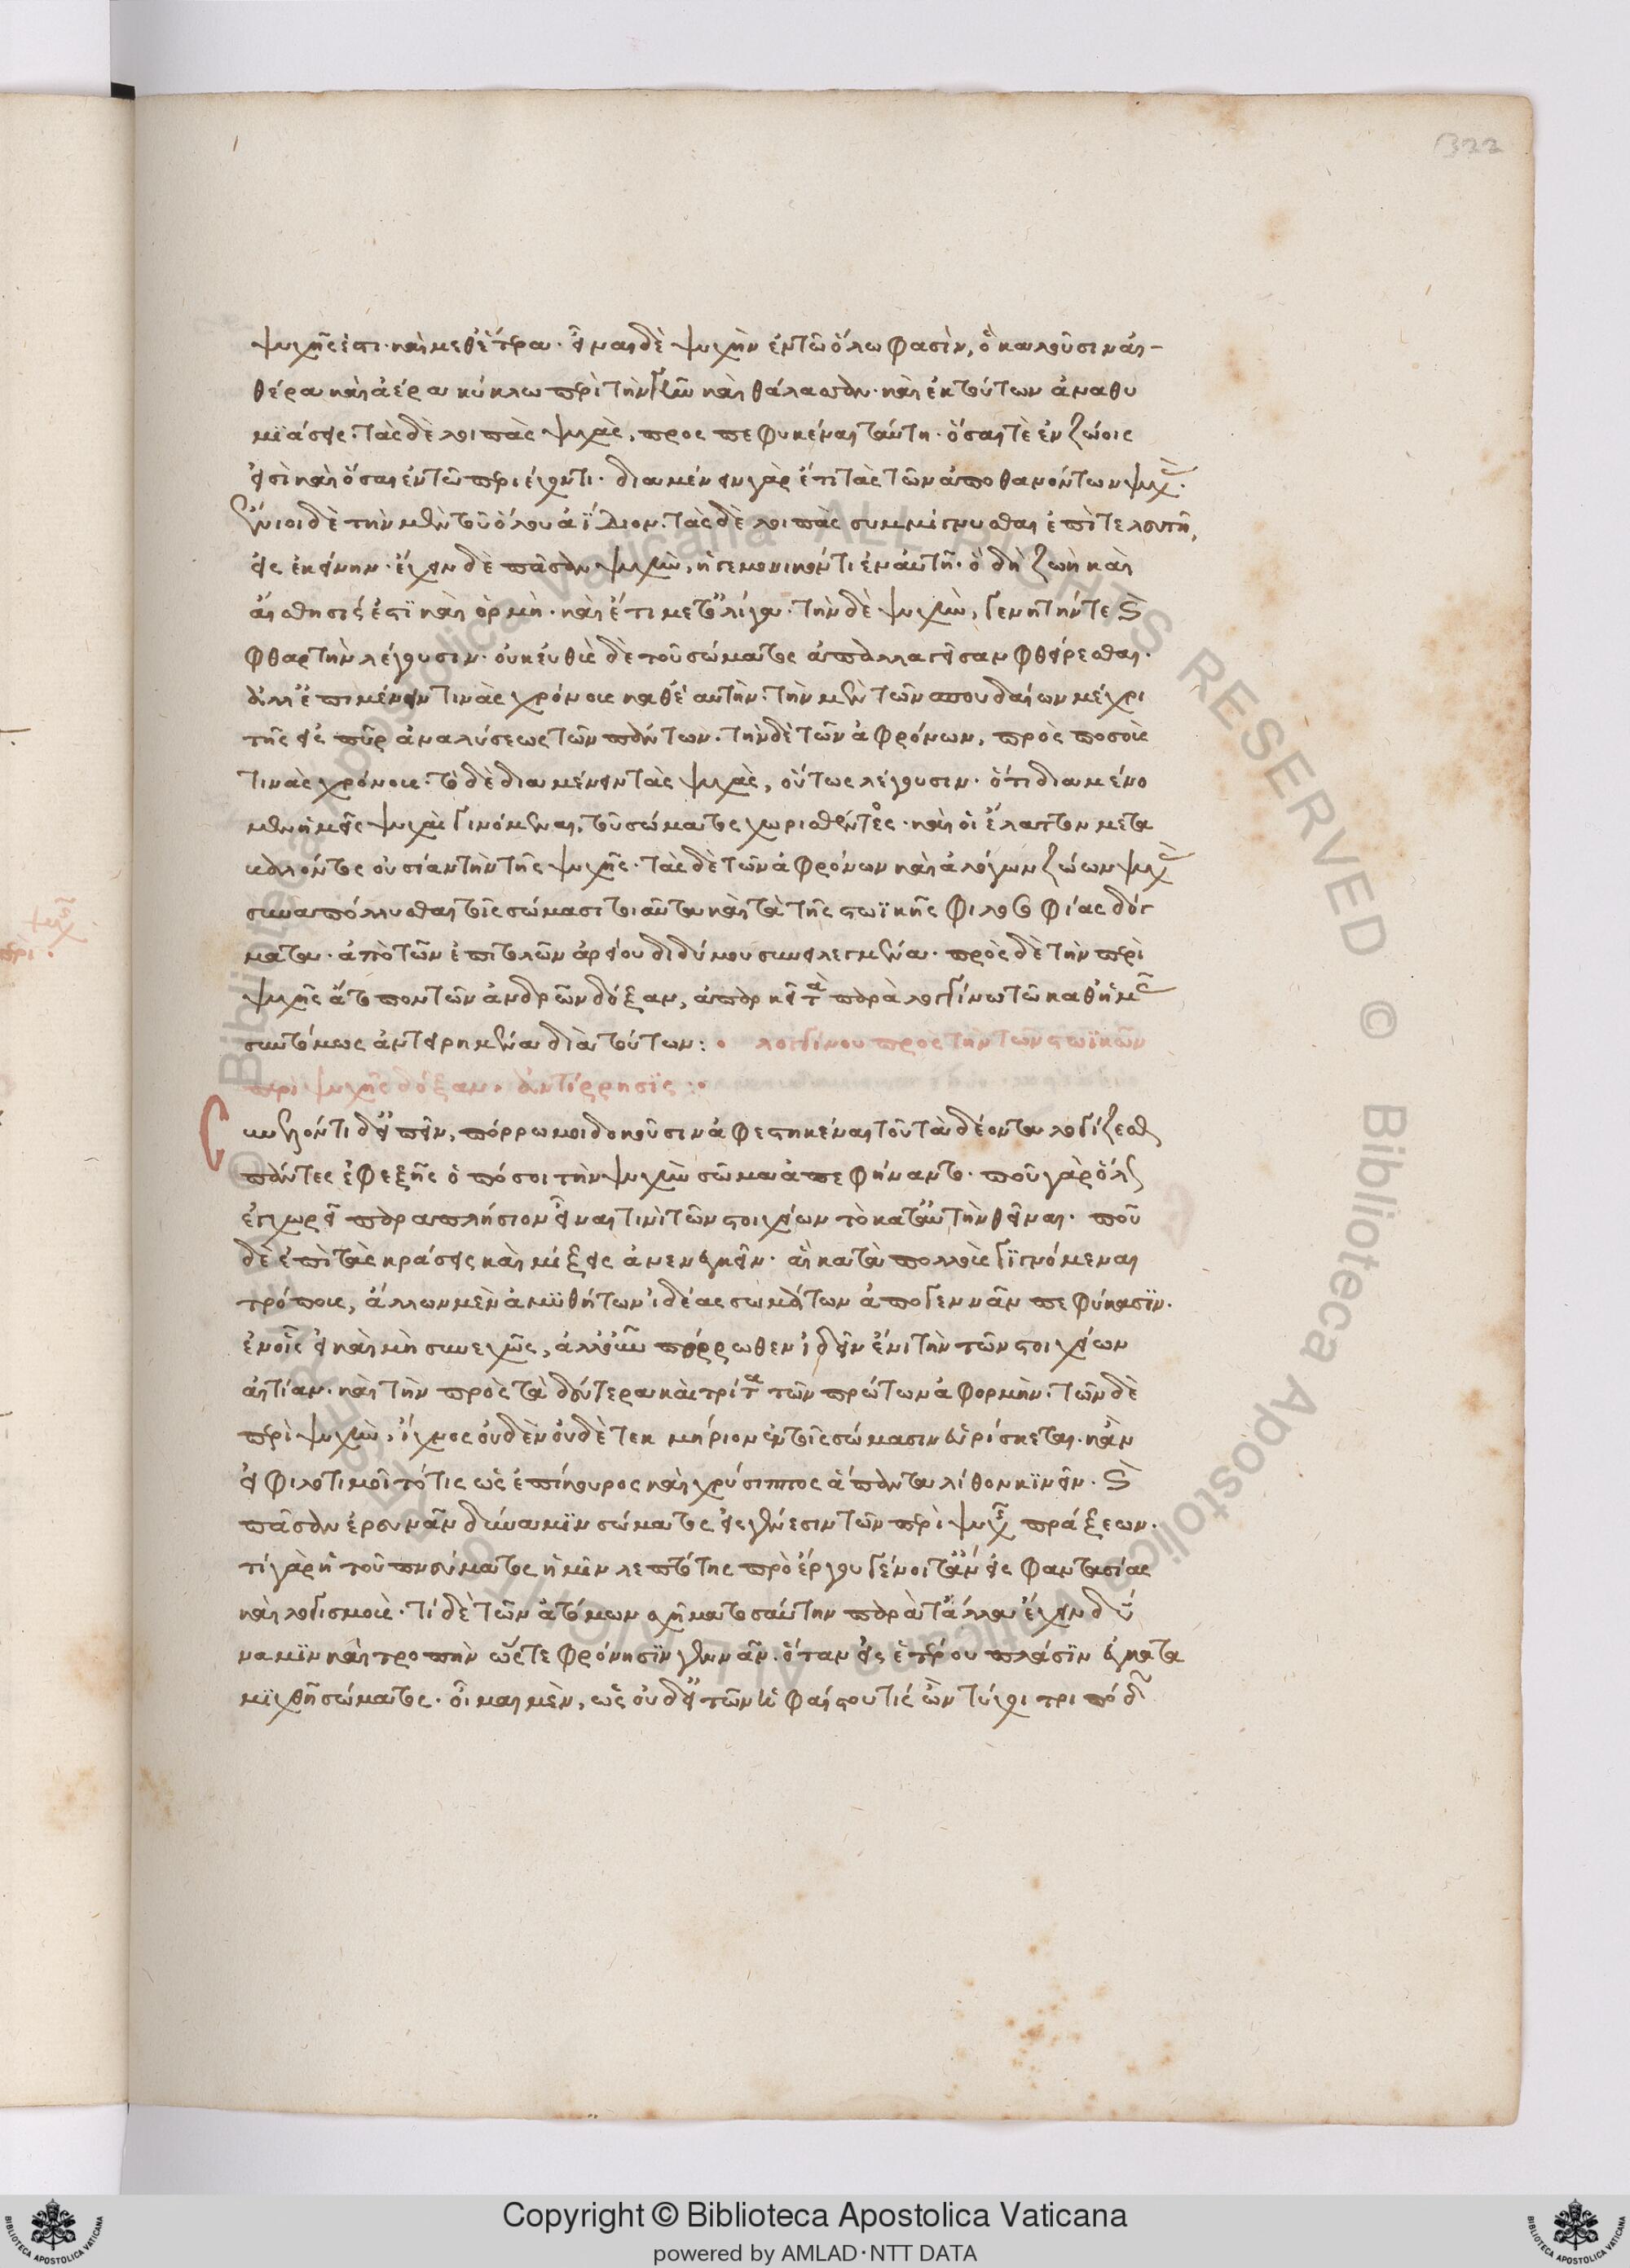 322
ψυχῆς ἐστι· καὶ μεθ' ἕτερα· εἶναι δὲ ψυχὴν ἐν τῶ ὅλω φασὶν, ὃ καλοῦσιν αἰ-
θέρα καὶ ἀέρα κύκλω περὶ τὴν γῆν καὶ θάλασσαν· καὶ ἐκ τούτων ἀναθυ
μιάσεις· τὰς δὲ λοιπὰς ψυχὰς, προσπεφυκέναι ταύτη· ὅσαι τὲ ἐν ζώοις
εἰσὶ καὶ ὅσαι ἐν τῶ περιέχοντι· διαμένειν γὰρ ἔτι τὰς τῶν ἀποθανόντων ψυχὰς·
ἔνιοι δὲ τὴν μὲν τοῦ ὅλου ἀΐδιον· τὰς δὲ λοιπὰς συμμίγνυσθαι ἐπὶ τελευτῆ,
εἰς ἐκείνην· ἔχειν δὲ πᾶσαν ψυχὴν, ἡγεμονικόν τι ἐν αὐτῆ· ὃ δὴ ζωὴ καὶ
αἴσθησίς ἐστὶ καὶ ὁρμὴ· καὶ ἔτι μετ' ὀλίγα· τὴν δὲ ψυχὴν, γενητήν τε καὶ
φθαρτὴν λέγουσιν· οὐκ εὐθὺς δὲ τοῦ σώματος ἀπαλλαγεῖσαν φθείρεσθαι·
ἀλλ' ἐπιμένειν τινὰς χρόνους καθ' ἑαυτὴν· τὴν μὲν τῶν σπουδαίων μέχρι
τῆς εἰς πῦρ ἀναλύσεως τῶν πάντων· τὴν δὲ τῶν ἀφρόνων, πρὸς ποσοὺς
τινὰς χρόνους· τὸ δὲ διαμένειν τὰς ψυχὰς, οὕτως λέγουσιν· ὅτι διαμένο
μεν ἡμεῖς ψυχαὶ γινόμεναι, τοῦ σώματος χωρισθέντος· καὶ εἰς ἔλαττον μετα
βαλόντος οὐσίαν τὴν τῆς ψυχῆς· τὰς δὲ τῶν ἀφρόνων καὶ ἀλόγων ζώων ψυχὰς
συναπόλλυσθαι τοῖς σώμασι τοιαῦτα καὶ τὰ τῆς στωϊκῆς φιλοσοφίας δόγ
ματα· ἀπὸ τῶν ἐπιτομῶν ἀρείου διδύμου συνειλεγμένα· πρὸς δὲ τὴν περὶ
ψυχῆς ἄτοπον τῶν ἀνδρῶν δόξαν, ἀπαρκεῖ τὰ παρὰ λογγίνω τῶ καθ' ἡμᾶς
συντόμως ἀντειρημένα διὰ τούτων: λογγίνου πρὸς τὴν τῶν στωϊκῶν
περὶ ψυχῆς δόξαν· ἀντίρρησις:
συνελόντι δ' εἰπεῖν, πόρρω μοι δοκοῦσιν ἀφεστηκέναι τοῦ τὰ δέοντα λογίζεσθαι
πάντες ἐφεξῆς ὁπόσοι τὴν ψυχὴν σῶμα ἀπεφήναντο· ποῦ γὰρ ὅλως
ἐγχωρεῖ παραπλήσιον εἶναι τινὶ τῶν στοιχείων τὸ κατ' αὐτὴν θεῖναι· ποῦ
δὲ ἐπὶ τὰς κράσεις καὶ μίξεις ἀνενεγκεῖν· αἳ κατὰ πολλοὺς γιγνόμεναι
τρόπους, ἄλλων μὲν ἀμυθήτων ἰδέας σωμάτων ἀπογεννᾶν πεφύκασιν·
ἐν οἷς εἰ καὶ μὴ συνεχῶς, ἀλλ' οὖν πόρρωθεν ἰδεῖν ἔνι τὴν τῶν στοιχείων
αἰτίαν· καὶ τὴν πρὸς τὰ δεύτερα καὶ τρίτα τῶν πρώτων ἀφορμὴν· τῶν δὲ
περὶ ψυχὴν, ἴχνος οὐδὲν οὐδὲ τεκμήριον ἐν τοῖς σώμασιν εὑρίσκεται· κἂν
εἰ φιλοτιμοῖτό τις ὡς ἐπίκουρος καὶ χρύσιππος ἅπαντα λίθον κινεῖν· καὶ
πᾶσαν ἐρευνᾶν δύναμιν σώματος εἰς γένεσιν τῶν περὶ ψυχῆς πράξεων·
τί γὰρ ἡ τοῦ πνεύματος ἡμῖν λεπτότης πρὸ ἔργου γένοιτ' ἂν εἰς φαντασίας
καὶ λογισμοὺς· τί δὲ τῶν ἀτόμων σχῆμα τοσαύτην παρὰ τἄλλα ἔχειν δύ
ναμιν καὶ τροπὴν ὥστε φρόνησιν γεννᾶν· ὅταν εἰς ἑτέρου πλάσιν ἐγκατα
μιχθῆ σώματος· οἶμαι μὲν, ὡς οὐδ' εἰ τῶν ἡφαίστου τις ὢν τύχοι τριπόδων